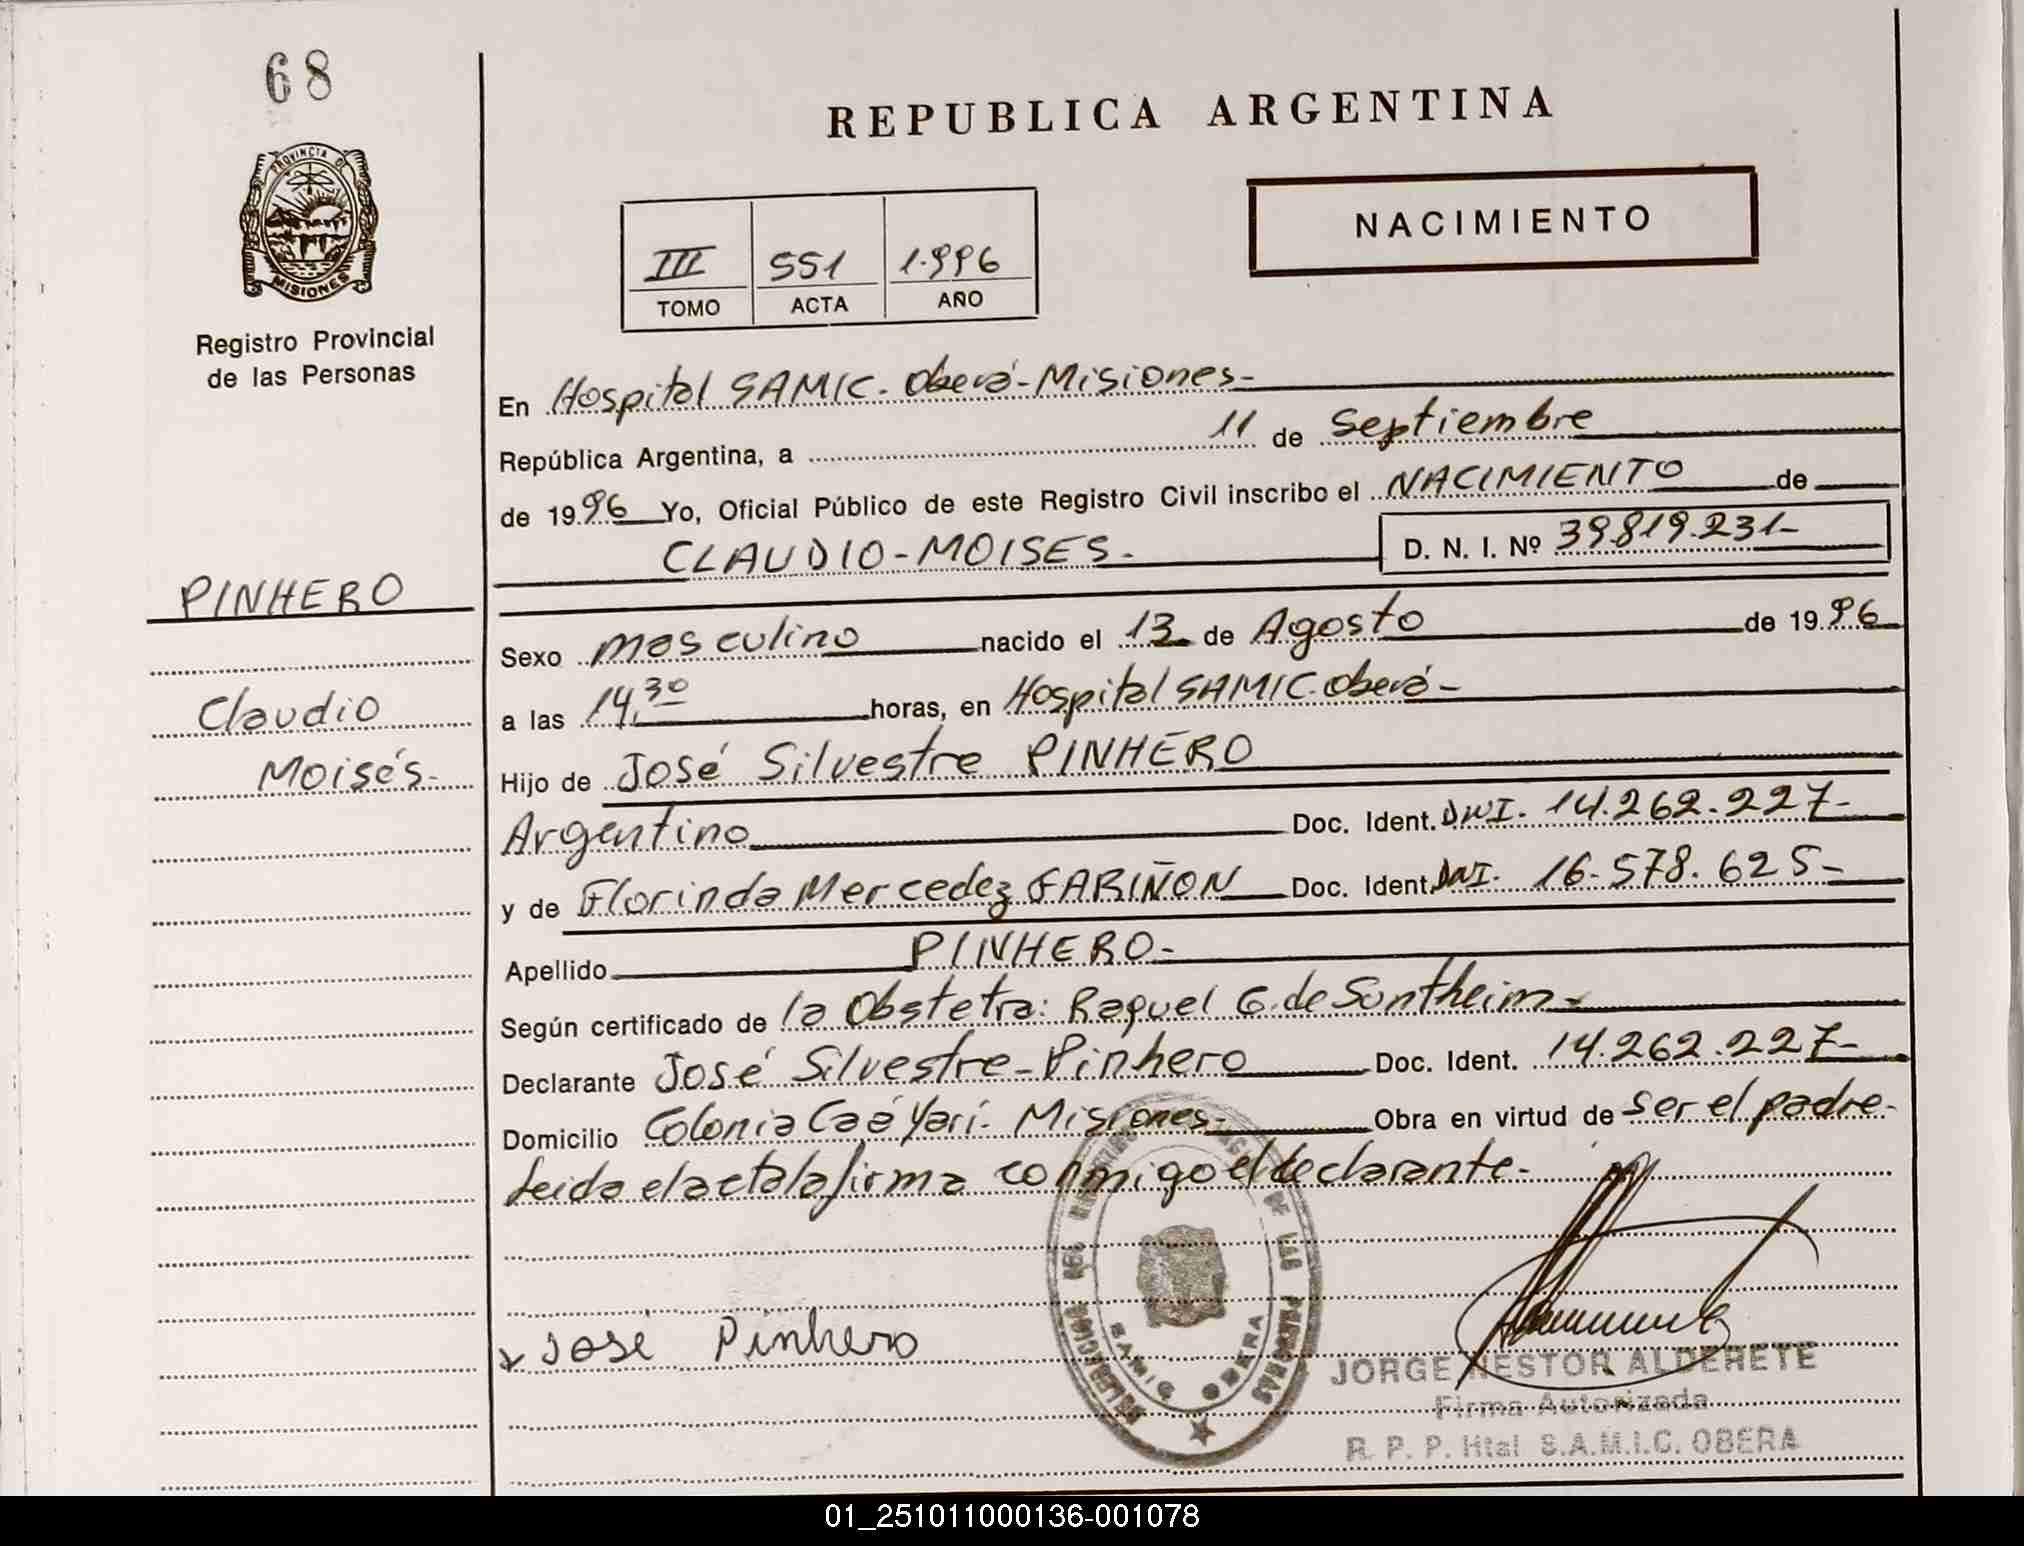 68
REPUBLICA ARGENTINA
PROVINCIA DE
MISIONES
NACIMIENTO
III 551 1.996
TOMO ACTA AÑO
Registro Provincial
de las Personas
En Hospital SAMIC. Oberá-Misiones-
República Argentina, a 11 de Septiembre
de 1996 Yo, Oficial Público de este Registro Civil inscribo el NACIMIENTO de
CLAUDIO-MOISES- D. N. I. Nº 39.819.231-
PINHERO
Claudio
Moisés-
Sexo masculino nacido el 13 de Agosto de 1996
a las 14,30 horas, en Hospital SAMIC. Oberá-
Hijo de José Silvestre PINHERO
Argentino Doc. Ident. DNI. 14.262.227-
y de Florinda Mercedez FARIÑON Doc. Ident. DNI. 16.578.625-
Apellido PINHERO-
Según certificado de la Obstetra: Raquel G. de Sontheim-
Declarante José Silvestre-Pinhero Doc. Ident. 14.262.227-
Domicilio Colonia Caá Yarí- Misiones- Obra en virtud de ser el padre-
Leida el acta la firma conmigo el declarante-
x José Pinhero
DELEGACION DEL REGISTRO DE LAS PERSONAS
SAMIC OBERA
JORGE NESTOR ALDERETE
Firma Autorizada
R. P. P. Htal S.A.M.I.C. OBERA
01_251011000136-001078